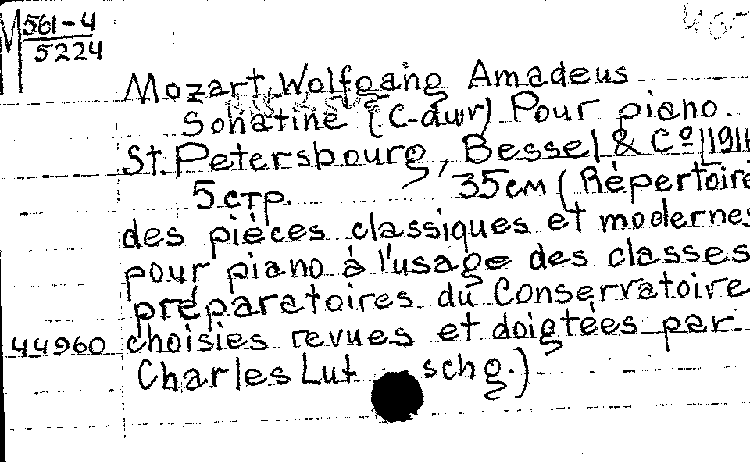 M 561-4
5224
Mozart, Wolfgang Amadeus
Sonatine (C-dur) Pour piano.
St. Petersbourg, Bessel & Cº [1911
5 стр. 35 см (Répertoire
des pièces classiques et modernes
pour piano à l'usage des classes
préparatoires du Conservatoire
44960 choisies revues et doigtées par
Charles Lut schg.)